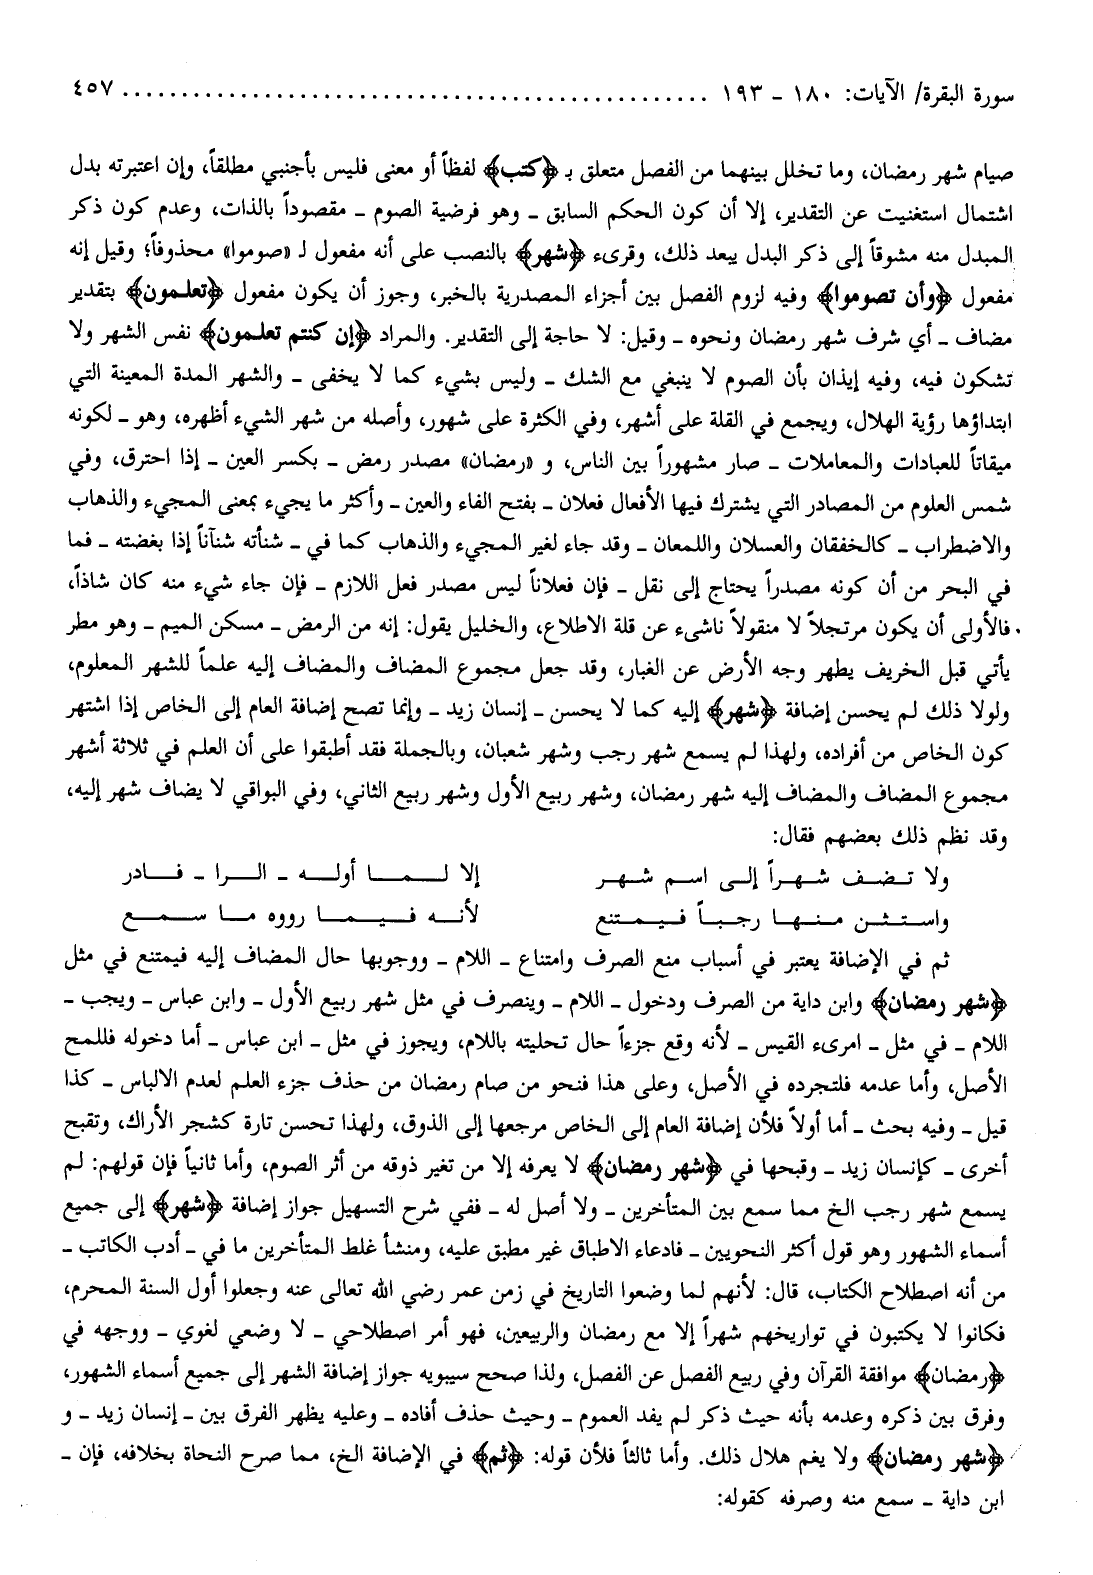 سورة البقرة/ الآيات: ١٨٠ ـ ١٩٣ ................................................ ٤٥٧
صيام شهر رمضان، وما تخلل بينهما من الفصل متعلق بـ ﴿كتب﴾ لفظاً أو معنى فليس بأجنبي مطلقاً، وإن اعتبرته بدل
اشتمال استغنيت عن التقدير، إلا أن كون الحكم السابق ـ وهو فرضية الصوم ـ مقصوداً بالذات، وعدم كون ذكر
المبدل منه مشوقاً إلى ذكر البدل يبعد ذلك، وقرىء ﴿شهر﴾ بالنصب على أنه مفعول لـ «صوموا» محذوفاً؛ وقيل إنه
مفعول ﴿وأن تصوموا﴾ وفيه لزوم الفصل بين أجزاء المصدرية بالخبر، وجوز أن يكون مفعول ﴿تعلمون﴾ بتقدير
مضاف ـ أي شرف شهر رمضان ونحوه ـ وقيل: لا حاجة إلى التقدير. والمراد ﴿إن كنتم تعلمون﴾ نفس الشهر ولا
تشكون فيه، وفيه إيذان بأن الصوم لا ينبغي مع الشك ـ وليس بشيء كما لا يخفى ـ والشهر المدة المعينة التي
ابتداؤها رؤية الهلال، ويجمع في القلة على أشهر، وفي الكثرة على شهور، وأصله من شهر الشيء أظهره، وهو ـ لكونه
ميقاتاً للعبادات والمعاملات ـ صار مشهوراً بين الناس، و «رمضان» مصدر رمض ـ بكسر العين ـ إذا احترق، وفي
شمس العلوم من المصادر التي يشترك فيها الأفعال فعلان ـ بفتح الفاء والعين ـ وأكثر ما يجيء بمعنى المجيء والذهاب
والاضطراب ـ كالخفقان والعسلان واللمعان ـ وقد جاء لغير المجيء والذهاب كما في ـ شنأته شنآناً إذا بغضته ـ فما
في البحر من أن كونه مصدراً يحتاج إلى نقل ـ فإن فعلاناً ليس مصدر فعل اللازم ـ فإن جاء شيء منه كان شاذاً،
فالأولى أن يكون مرتجلاً لا منقولاً ناشىء عن قلة الاطلاع، والخليل يقول: إنه من الرمض ـ مسكن الميم ـ وهو مطر
يأتي قبل الخريف يطهر وجه الأرض عن الغبار، وقد جعل مجموع المضاف والمضاف إليه علماً للشهر المعلوم،
ولولا ذلك لم يحسن إضافة ﴿شهر﴾ إليه كما لا يحسن ـ إنسان زيد ـ وإنما تصح إضافة العام إلى الخاص إذا اشتهر
كون الخاص من أفراده، ولهذا لم يسمع شهر رجب وشهر شعبان، وبالجملة فقد أطبقوا على أن العلم في ثلاثة أشهر
مجموع المضاف والمضاف إليه شهر رمضان، وشهر ربيع الأول وشهر ربيع الثاني، وفي البواقي لا يضاف شهر إليه،
وقد نظم ذلك بعضهم فقال:
ولا تضف شهراً إلى اسم شهر إلا لما أوله ـ الرا ـ فادر
واستثن منها رجباً فيمتنع لأنه فيما رووه ما سمع
ثم في الإضافة يعتبر في أسباب منع الصرف وامتناع ـ اللام ـ ووجوبها حال المضاف إليه فيمتنع في مثل
﴿شهر رمضان﴾ وابن داية من الصرف ودخول ـ اللام ـ وينصرف في مثل شهر ربيع الأول ـ وابن عباس ـ ويجب ـ
اللام ـ في مثل ـ امرىء القيس ـ لأنه وقع جزءاً حال تحليته باللام، ويجوز في مثل ـ ابن عباس ـ أما دخوله فللمح
الأصل، وأما عدمه فلتجرده في الأصل، وعلى هذا فنحو من صام رمضان من حذف جزء العلم لعدم الالباس ـ كذا
قيل ـ وفيه بحث ـ أما أولاً فلأن إضافة العام إلى الخاص مرجعها إلى الذوق، ولهذا تحسن تارة كشجر الأراك، وتقبح
أخرى ـ كإنسان زيد ـ وقبحها في ﴿شهر رمضان﴾ لا يعرفه إلا من تغير ذوقه من أثر الصوم، وأما ثانياً فإن قولهم: لم
يسمع شهر رجب الخ مما سمع بين المتأخرين ـ ولا أصل له ـ ففي شرح التسهيل جواز إضافة ﴿شهر﴾ إلى جميع
أسماء الشهور وهو قول أكثر النحويين ـ فادعاء الاطباق غير مطبق عليه، ومنشأ غلط المتأخرين ما في ـ أدب الكاتب ـ
من أنه اصطلاح الكتاب، قال: لأنهم لما وضعوا التاريخ في زمن عمر رضي الله تعالى عنه وجعلوا أول السنة المحرم،
فكانوا لا يكتبون في تواريخهم شهراً إلا مع رمضان والربيعين، فهو أمر اصطلاحي ـ لا وضعي لغوي ـ ووجهه في
﴿رمضان﴾ موافقة القرآن وفي ربيع الفصل عن الفصل، ولذا صحح سيبويه جواز إضافة الشهر إلى جميع أسماء الشهور،
وفرق بين ذكره وعدمه بأنه حيث ذكر لم يفد العموم ـ وحيث حذف أفاده ـ وعليه يظهر الفرق بين ـ إنسان زيد ـ و
﴿شهر رمضان﴾ ولا يغم هلال ذلك. وأما ثالثاً فلأن قوله: ﴿ثم﴾ في الإضافة الخ، مما صرح النحاة بخلافه، فإن ـ
ابن داية ـ سمع منه وصرفه كقوله: